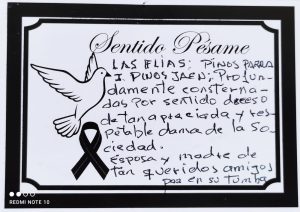 Sentido Pésame
LAS FLIAS; PINOS PARRA
I. PINOS JAEN; Profun-
damente consterna-
das por sentido deceso
de tan apreciada y res-
petable dama de la So-
ciedad.
Esposa y madre de
tan queridos amigos
paz en su tumba
REDMI NOTE 10